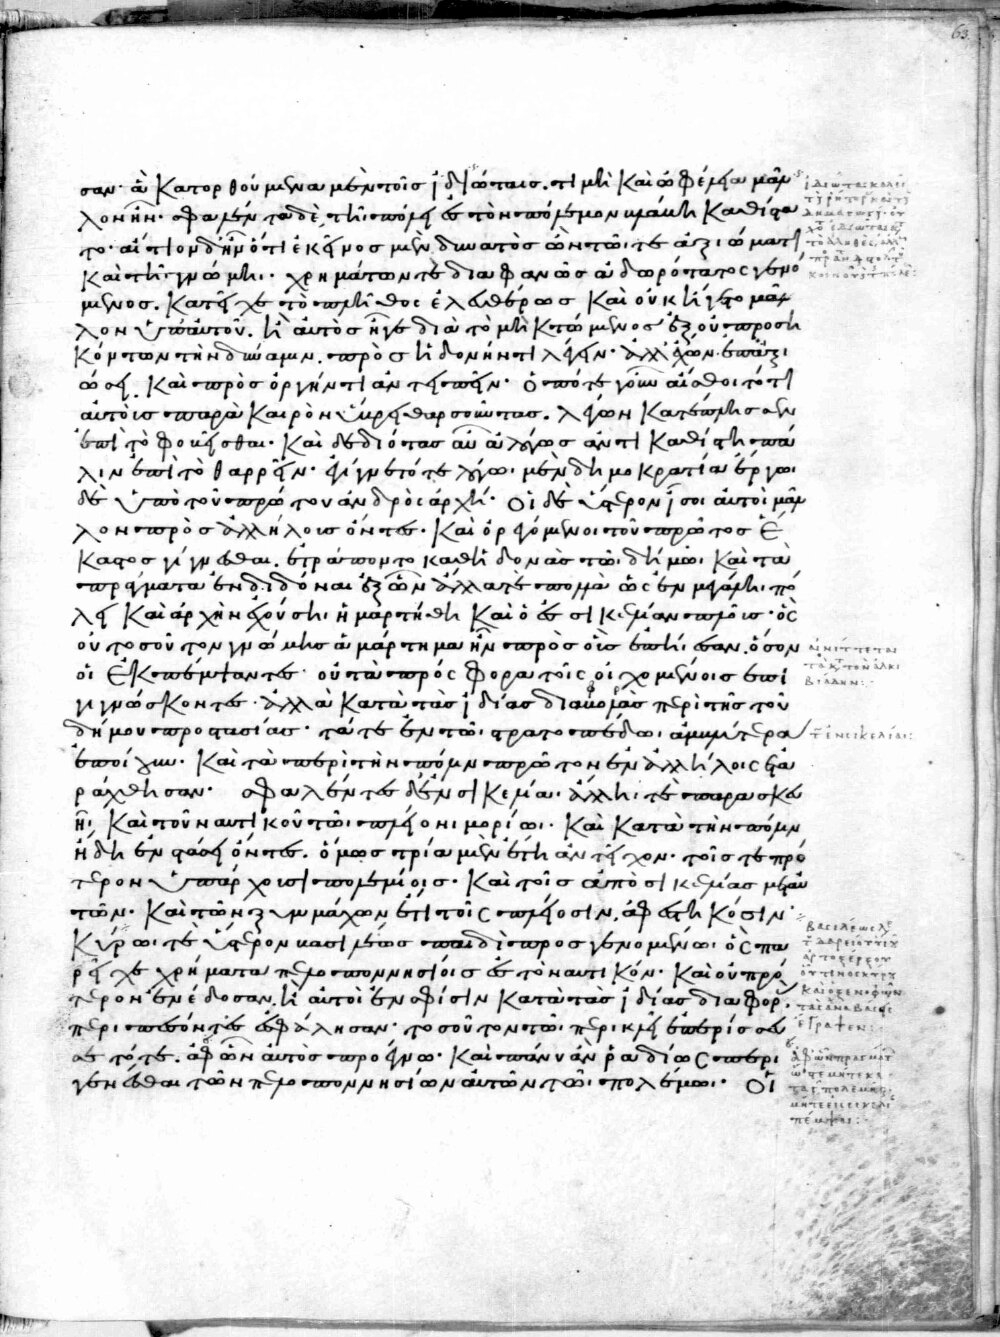 σαν· ἃ κατορθούμενα μὲν τοῖς ἰδιώταις. τιμὴ καὶ ὠφέλεια μᾶλ
λον ἦν· σφαλέντα δὲ τῆι πόλει ἐς τὸν πόλεμον βλάβη καθίστα
το· αἴτιον δ' ἦν ὅτι ἐκεῖνος μὲν δυνατὸς ὢν τῶι τε ἀξιώματι
καὶ τῆι γνώμηι· χρημάτων τε διαφανῶς ἀδωρότατος γενό
μενος. κατεῖχε τὸ πλῆθος ἐλευθέρως καὶ οὐκ ἤγετο μᾶλ
λον ὑπ' αὐτοῦ. ἢ αὐτὸς ἦγε διὰ τὸ μὴ κτώμενος ἐξ οὐ προση
κόντων τὴν δύναμιν. πρὸς ἡδονήν τι λέγειν· ἀλλ' ἔχων ἐπ' ἀξι
ώσει. καὶ πρὸς ὀργήν τι ἀντειπεῖν· ὁπότε γοῦν αἴσθοιτό τι
αὐτοὺς παρὰ καιρὸν ὕβρει θαρσοῦντας. λέγων κατέπλησσεν
ἐπὶ τὸ φοβεῖσθαι· καὶ δεδιότας αὖ ἀλόγως ἀντικαθίστη πά
λιν ἐπὶ τὸ θαρρεῖν· ἐγίγνετό τε λόγωι μὲν δημοκρατία ἔργωι
δὲ ὑπὸ τοῦ πρώτου ἀνδρὸς ἀρχή· οἱ δὲ ὕστερον ἴσοι αὐτοὶ μᾶλ
λον πρὸς ἀλλήλους ὄντες· καὶ ὀρεγόμενοι τοῦ πρῶτος ἕ
καστος γίγνεσθαι. ἐτράποντο καθ' ἡδονὰς τῶι δήμωι καὶ τὰ
πράγματα ἐνδιδόναι ἐξ ὧν ἄλλα τε πολλὰ ὡς ἐν μεγάληι πό
λει καὶ ἀρχὴν ἐχούσηι ἡμαρτήθη καὶ ὁ ἐς σικελίαν πλοῦς· ὃς
οὐ τοσοῦτον γνώμης ἁμάρτημα ἦν πρὸς οὓς ἐπήϊεσαν. ὅσον
οἱ ἐκπέμψαντες· οὐ τὰ πρόσφορα τοῖς οἰχομένοις ἐπι
γιγνώσκοντες· ἀλλὰ κατὰ τὰς ἰδίας διαβολὰς περὶ τῆς τοῦ
δήμου προστασίας· τά τε ἐν τῶι στρατοπέδωι ἀμβλύτερα
ἐποίουν· καὶ τὰ περὶ τὴν πόλιν πρῶτον ἐν ἀλλήλοις ἐτα
ράχθησαν· σφαλέντες δ' ἐν σικελία· ἄλληι τε παρασκευ
ῆι καὶ τοῦ ναυτικοῦ τῶι πλείονι μορίωι· καὶ κατὰ τὴν πόλιν
ἤδη ἐν στάσει ὄντες. ὅμως τρία μὲν ἔτη ἀντεῖχον· τοῖς τε πρό
τερον ὑπάρχουσι πολεμίοις· καὶ τοῖς ἀπὸ σικελίας μετ' αὐ
τῶν· καὶ τῶν ξυμμάχων ἔτι τοῖς πλείοσιν. ἀφεστηκόσιν·
Κύρωι τε ὕστερον βασιλέως παιδὶ προσγενομένωι· ὃς πα
ρεῖχε χρήματα πελοποννησίοις ἐς τὸ ναυτικόν· καὶ οὐ πρό
τερον ἐνέδοσαν. ἢ αὐτοὶ ἐν σφίσιν κατὰ τὰς ἰδίας διαφορὰς
περιπεσόντες ἐσφάλησαν· τοσοῦτον τῶι περικλεῖ ἐπερίσσευ
σε τότε. ἀφ' ὧν αὐτὸς προέγνω· καὶ πάνυ ἂν ῥαδίως περι
γενέσθαι τῶν πελοποννησίων αὐτῶν τῶι πολέμωι· Οἱ
αἰνίττεται
τὸν ἀλκι
βιάδην:
τ ἐν σικελίαι: